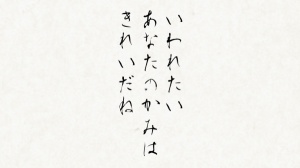 いわれたい
あなたのかみは
きれいだね